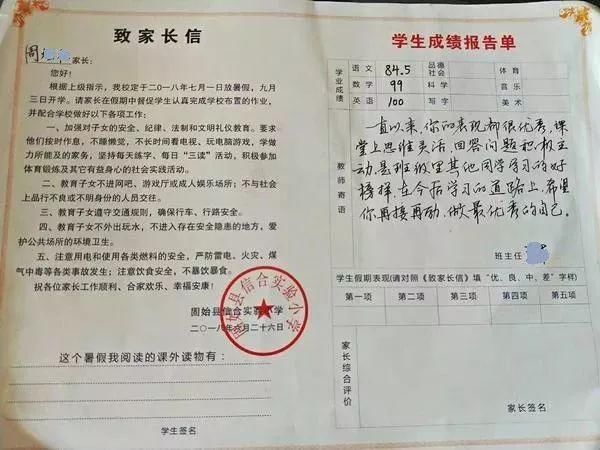 致家长信
周
家长:
您好!
根据上级指示，我校定于二〇一八年七月一日放暑假，九月
三日开学。请家长在假期中督促学生认真完成学校布置的作业，
并配合学校做好以下各项工作:
一、加强对子女的安全、纪律、法制和文明礼仪教育。要求
他们按时作息，不睡懒觉，不长时间看电视、玩电脑游戏，学做
力所能及的家务，坚持每天练字、每日“三读”活动，积极参加
体育锻炼及其它有益身心的社会实践活动。
二、教育子女不进网吧、游戏厅或成人娱乐场所；不与社会
上品行不良或不明身份的人员交往。
三、教育子女遵守交通规则，确保行车、行路安全。
四、教育子女不外出玩水，不进入存在安全隐患的地方，爱
护公共场所的环境卫生。
五、注意用电和使用各类燃料的安全，严防雷电、火灾、煤
气中毒等各类事故发生；注意饮食安全，不暴饮暴食。
祝各位家长工作顺利、合家欢乐、幸福安康!
固始县信合实验小学
二〇一八年六月二十六日
固始县信合实验小学
这个暑假我阅读的课外读物有:
学生签名
学生成绩报告单
学业成绩
语文 84.5 品德社会 体育
数学 99 科学 音乐
英语 100 写字 美术
教师寄语
一直以来，你的表现都很优秀，课
堂上思维灵活，回答问题积极主
动，是班级里其他同学学习的好
榜样，在今后学习的道路上，希望
你再接再励，做最优秀的自己。
班主任
学生假期表现(请对照《致家长信》填“优、良、中、差”字样)
第一项 第二项 第三项 第四项 第五项
家长综合评价
家长签名